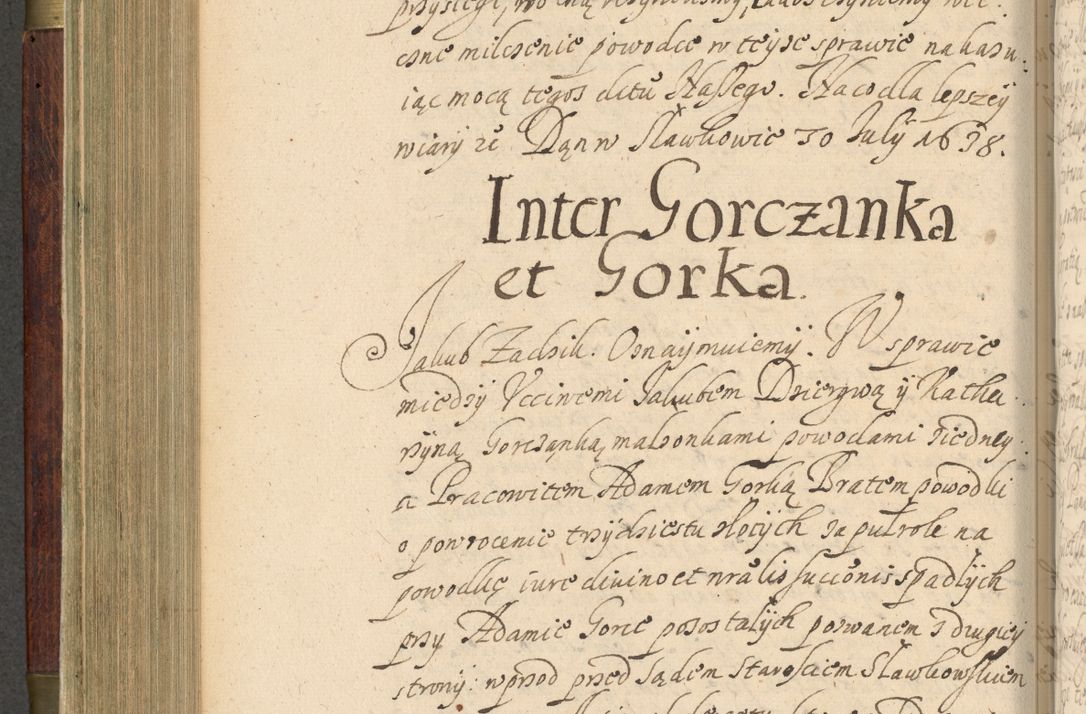 czne milczenie powodce w teyze sprawie nakazu
iąc mocą tegos dctu Nassego. Na co dla lepszey
wiary ze Dan w Slawkowie 30 July 1638.
Inter Gorczanka
et Gorka.
Jakub Zadzik. Oznaÿmuiemÿ. W sprawie
miedzÿ Vcciwemi Jakubem Dziergwą ÿ Katha
rzÿną Gorczanką malzonkami powodami ziedney
a Pracowitem Adamem Gorką Bratem powodki
o powrocenie trzÿdziestu zlotÿch za pulrole na
powodkę iure divino et nralis succionis spadlÿch
przy Adamie Gorce pozostalÿch pozwanem z drugiey
strony: wprzod przed sądem Staroskiem Slawkowskiem